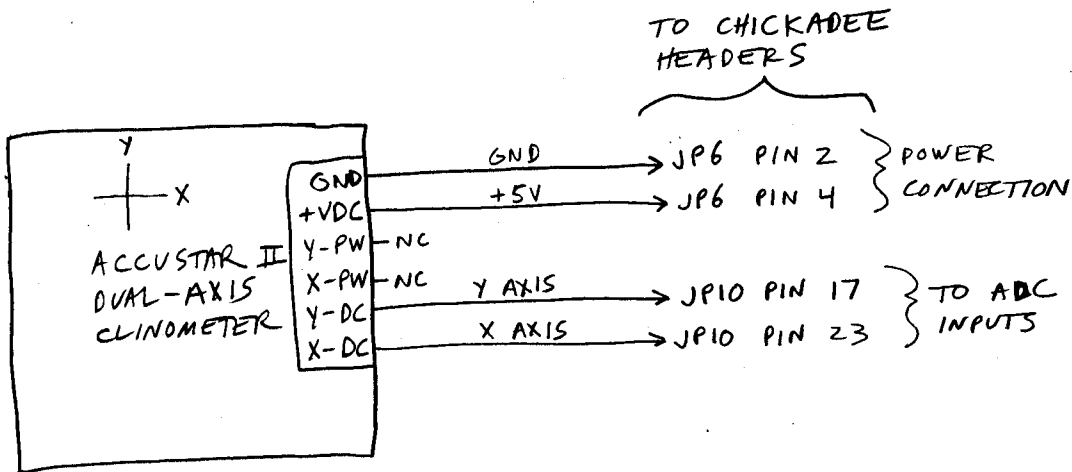 TO CHICKADEE
HEADERS
Y
X
ACCUSTAR II
DUAL-AXIS
CLINOMETER
GND
+VDC
Y-PW
X-PW
Y-DC
X-DC
GND
+5V
NC
NC
Y AXIS
X AXIS
JP6 PIN 2
JP6 PIN 4
POWER
CONNECTION
JP10 PIN 17
JP10 PIN 23
TO ADC
INPUTS